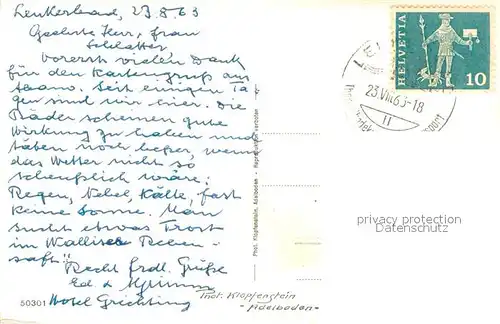 Leukerbad, 23.8.63
Geehrte Herr, frau
Schlatter
Vorerst vielen Dank
für den Kartengruss aus
Seit einigen Ta
gen sind wir hier. Die
Bäder scheinen gute
Wirkung zu haben und
täten noch besser, wenn
das Wetter nicht so
scheusslich wäre:
Regen, Nebel, Kälte, fast
keine Sonne. Man
sucht etwas Trost
im Walliser Reben-
saft!!
Recht frdl. Grüsse
Ed &
Hotel Grichting
50301
Phot. Klopfenstein, Adelboden - Reproduktion verboten
Phot. Klopfenstein
- Adelboden -
HELVETIA
10
23.VIII.63-18
11
privacy protection
Datenschutz